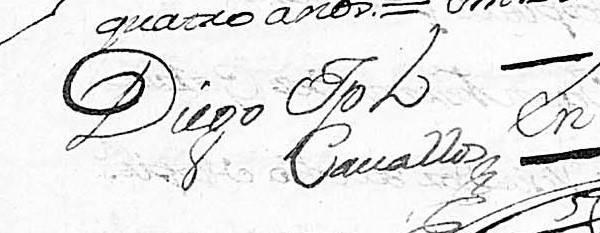 quatro años.= En
Diego Jph
Cauallos
En